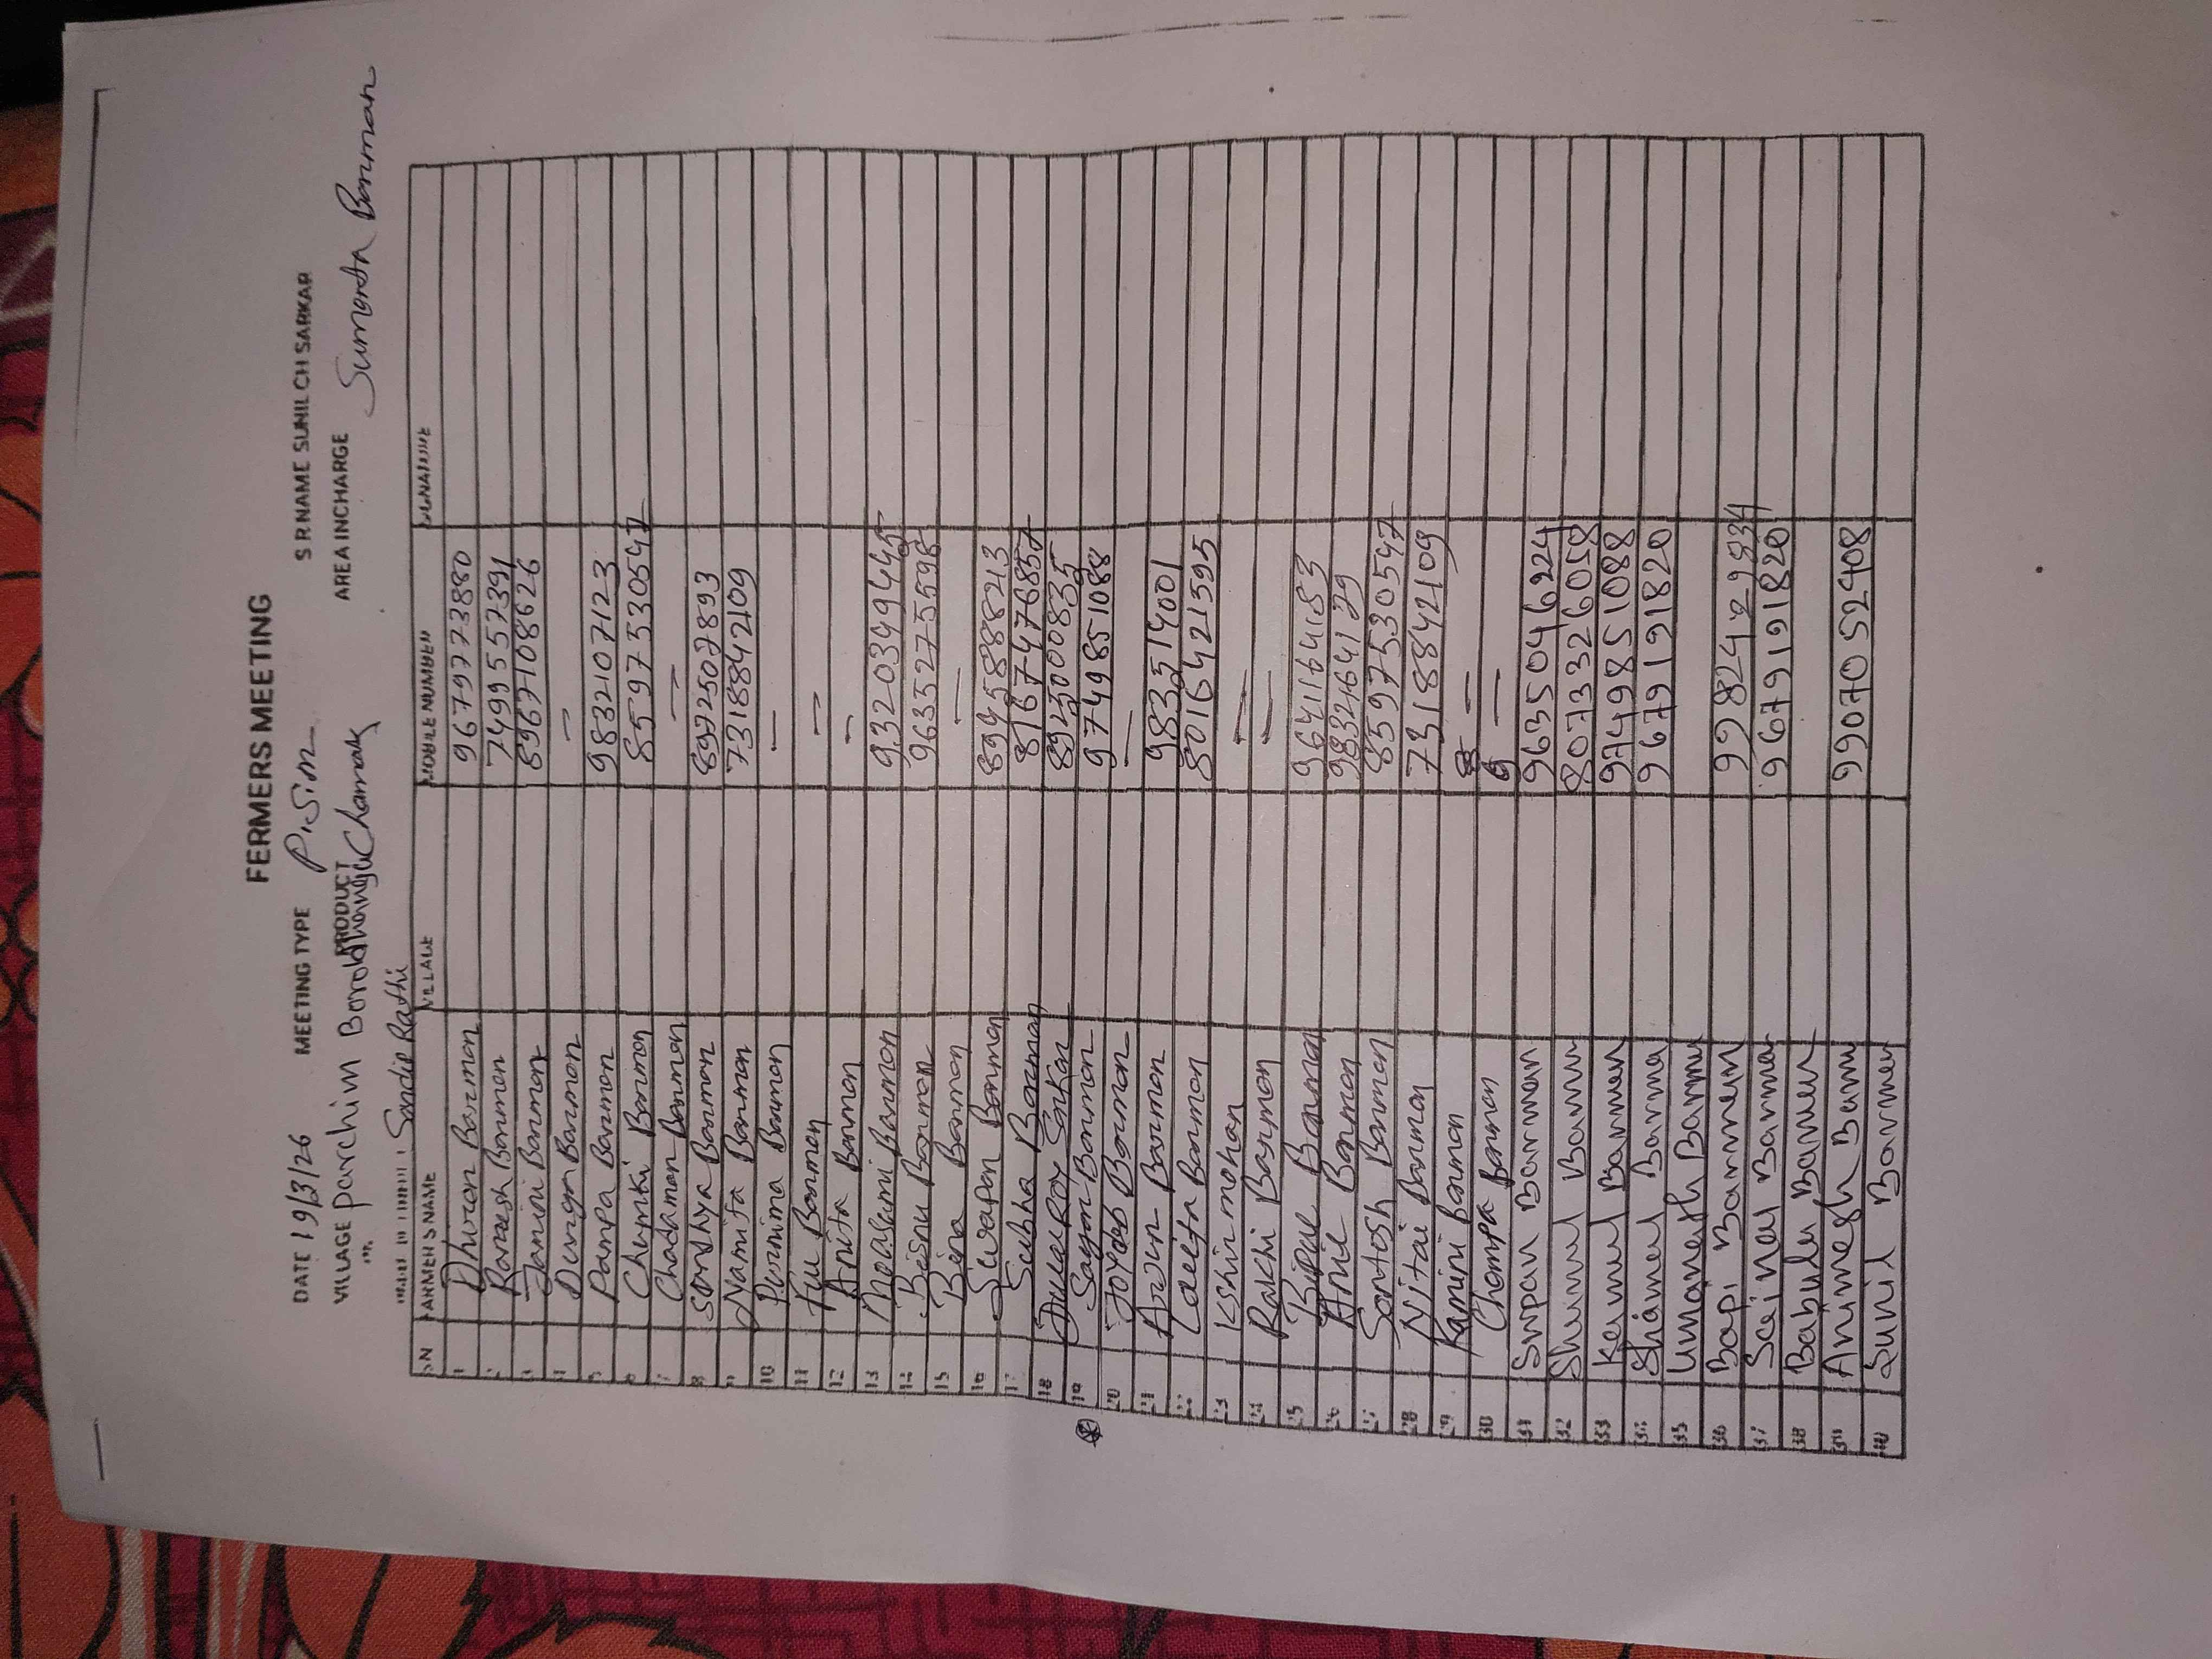 FERMERS MEETING
DATE 19/3/26 MEETING TYPE P.Sim S R NAME SUNIL CH SARKAR
VILLAGE Parchim Borobhangi PRODUCT Chamak AREA INCHARGE Sumanta Barman
Sandip Rathi
SN FARMERS NAME VILLAGE MOBILE NUMBER SIGNATURE
1 Dhiran Barman 9679773880
2 Paresh Barman 7499557391
3 Jamini Barman 8967108626
4 Durga Barman —
5 Pampa Barman 9832107123
6 Chumki Barman 8597530547
7 Chadamon Barman —
8 Sondhya Barman 8972507893
9 Namita Barman 7318842109
10 Purnima Barman —
11 Fu Barman —
12 Anita Barman —
13 Moasumi Barman 9320349445
14 Bisnu Barman 9635275598
15 Bina Barman —
16 Swapan Barman 8945888213
17 Subha Barman 8167476857
18 Dulal Roy Sarkar 8925000835
19 Sagan Barman 9749851088
20 Joydeb Barman —
21 Arjun Barman 983514001
22 Lalita Barman 8016421595
23 Kshirmohan —
24 Rakhi Barman —
25 Bipul Barman 9641164183
26 Anil Barman 983264129
27 Santosh Barman 8597530547
28 Nitai Barman 7318842109
29 Kamini Barman —
30 Chompa Barman 9 —
31 Swpan Barman 9635046224
32 Shumul Barmn 8073326058
33 Kamul Barmen 9749851088
34 Shiamel Barma 9679191820
35 Umanash Barmn
36 Bapi Barmen
37 Sainal Barmen 9679191820
38 Babulu Barmen
39 Animesh Barmn 9907052408
40 Sunil Barmen